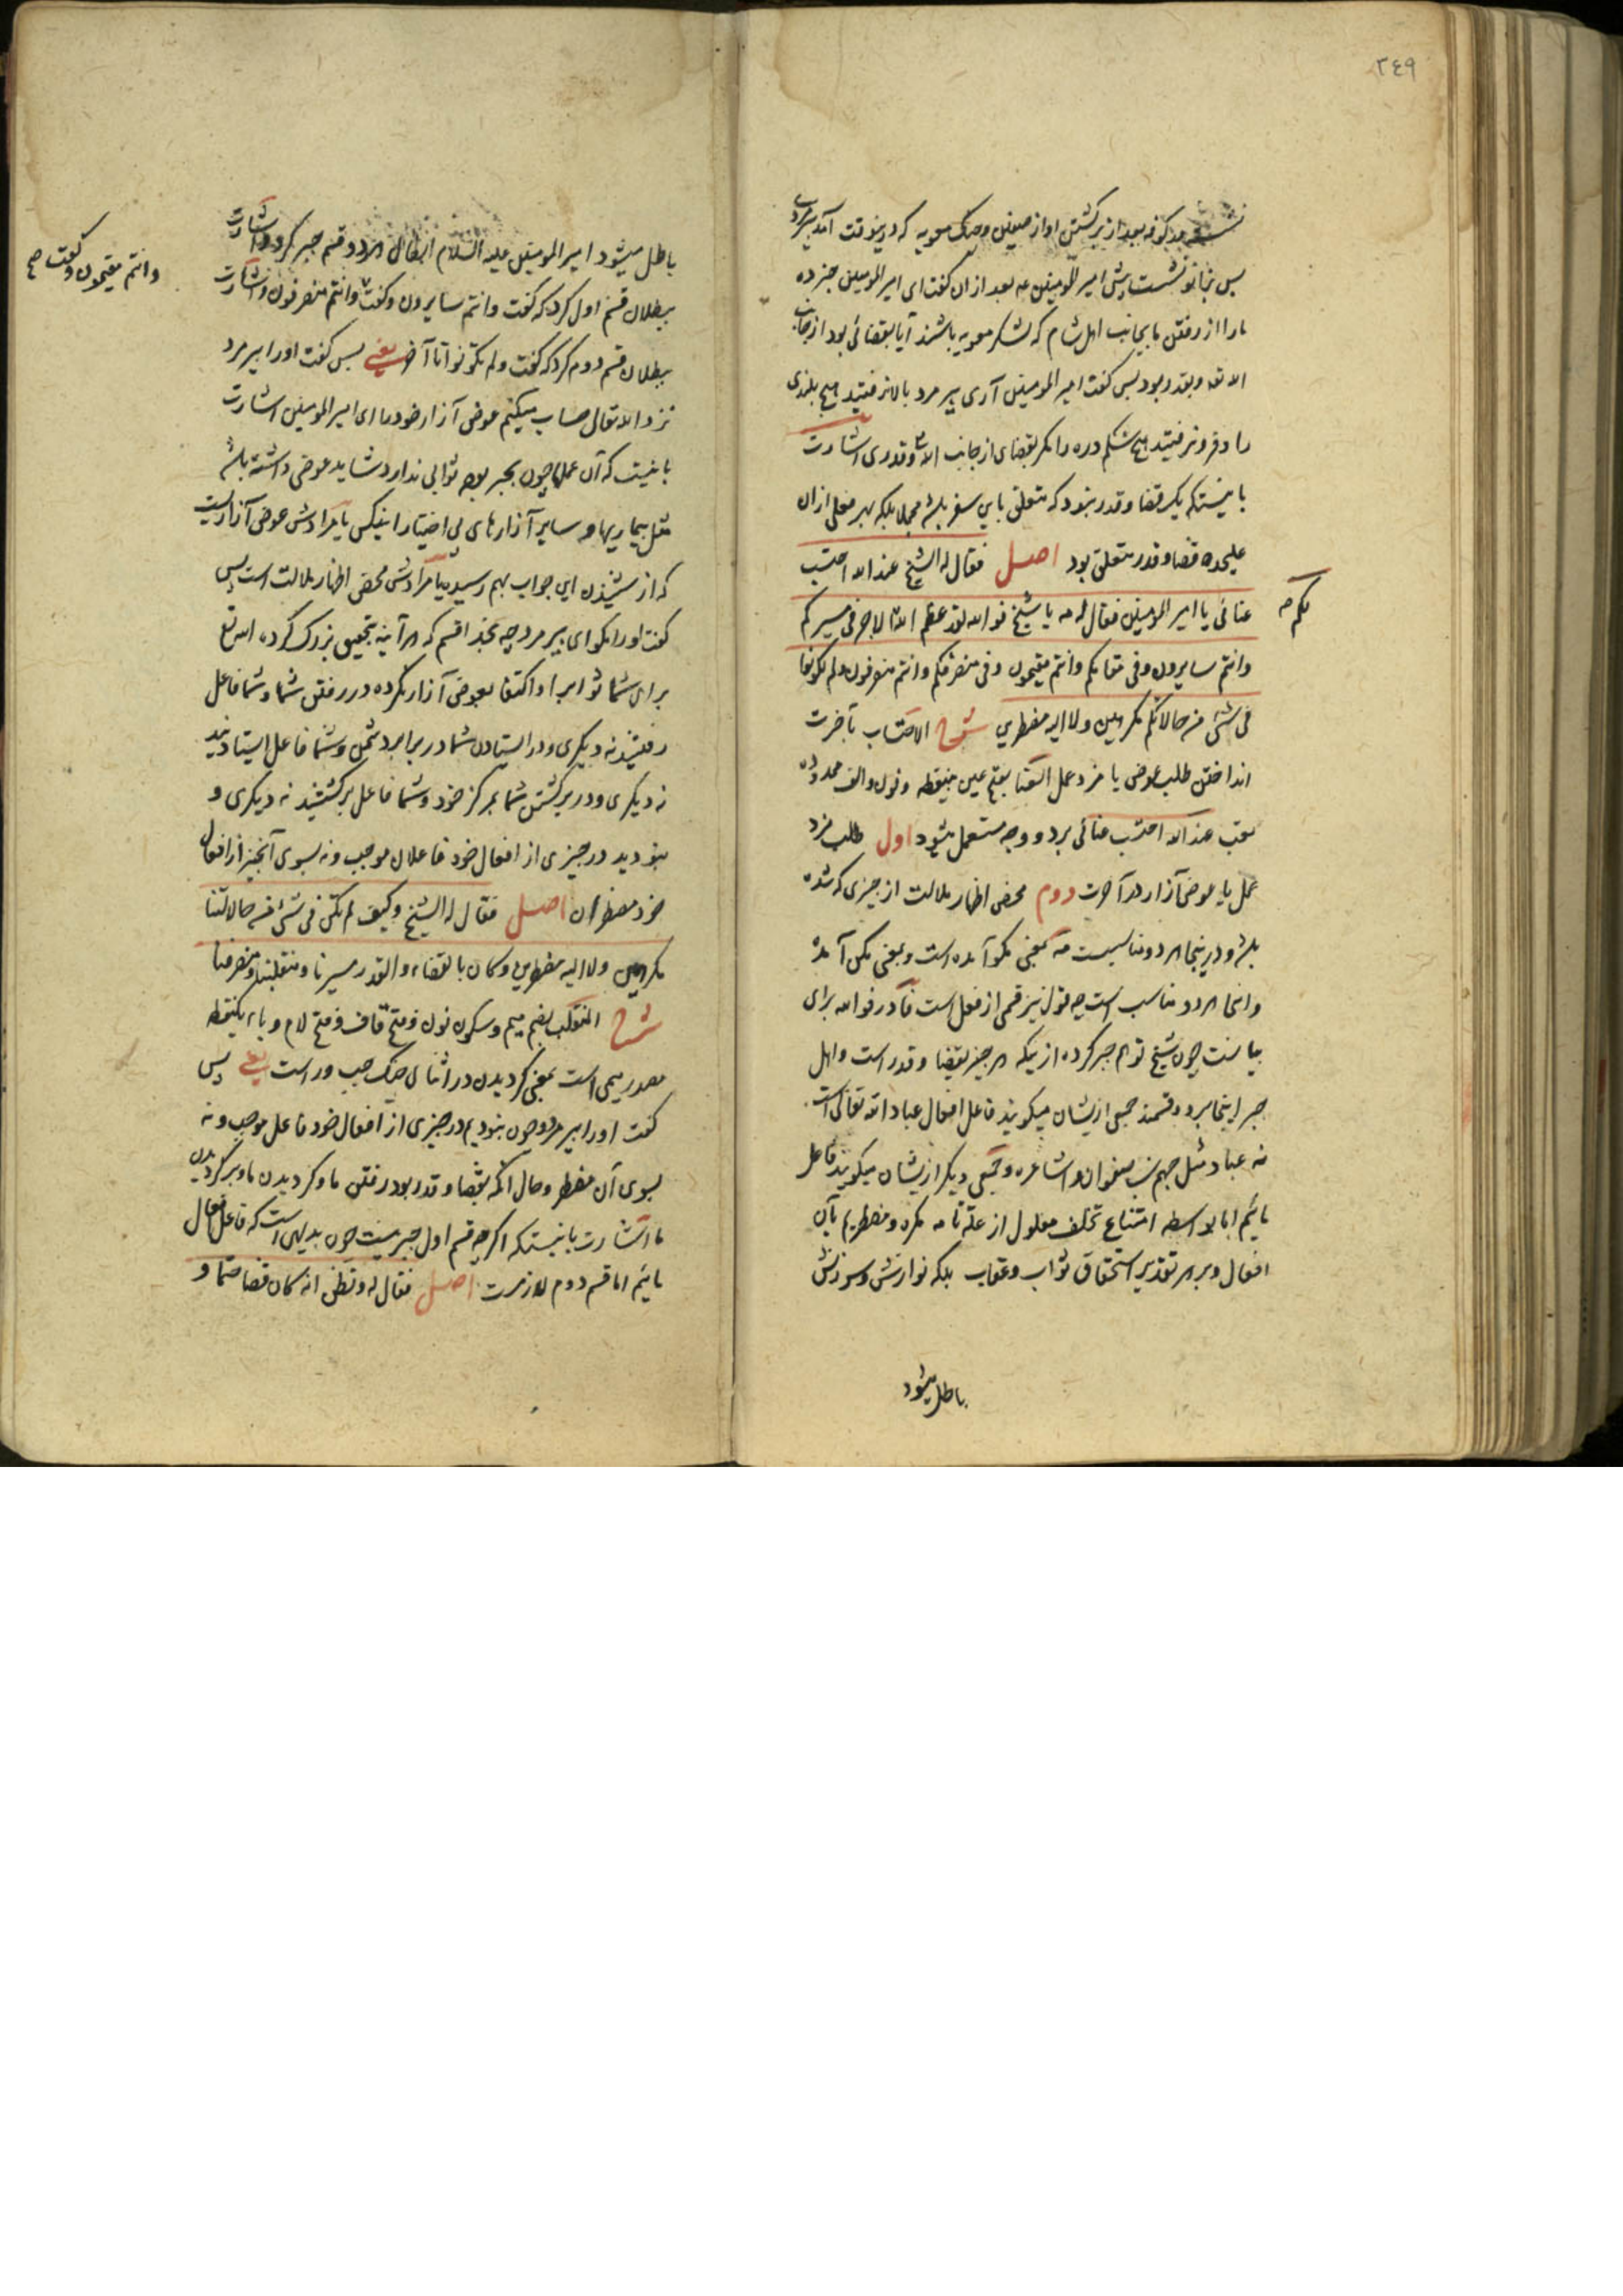 ٣٤٩
نشسته در کوفه بعد از برگشتن او از صفین و جنک معویه که در ینوقت آمد پیرمردی
پس بزانو نشست پیش امیر المومنین عه بعد ازان کفت ای امیر المومنین خبر ده
مارا از رفتن ما بجانب اهل شام که لشکر معویه باشند آیا بقضائی بود از جانب
الله تعه و بقدر بود پس کفت امیر المومنین آری پیر مرد بالا نرفتید هیچ بلندی
را و فرو نرفتید هیچ شکم دره را مکر بقضای از جانب الله و قدری اشارت
باینستکه یک قضا و قدر نبود که متعلق باین سفر باشد مجملا بلکه بهر فعلی ازان
علیحده قضا و قدر متعلق بود اصل فقال له الشیخ عند الله احتسب
عنائی یا امیر المومنین فقال له مه یا شیخ فوالله لقد عظم الله لکم الاجر فی مسیرکم
وانتم سایرون وفی مقامکم وانتم مقیمون وفی منصرفکم وانتم منصرفون ولم تکونوا
فی شئ من حالاتکم مکرهین ولا الیه مضطرین شرح الاحتساب بآخرت
انداختن طلب عوض یا مزد عمل العنا بفتح عین بینقطه و نون والف ممدوده
تعب عند الله احتسب عنائی بر دو وجه مستعمل میشود اول طلب مزد
عمل یا عوض آزار در آخرت دوم محض اظهار ملالت از چیزی که شده
باشد و در ینجا هر دو مناسبست مه بمعنی مکو آمده است و بمعنی مکن آمده
و اینجا هر دو مناسب است چه قول نیز قسمی از فعل است فا در فوالله برای
بیانست چون شیخ توهم جبر کرده از ینکه هر چیز بقضا و قدر است و اهل
جبر اینجا بر دو قسمند جمعی از یشان میکویند فاعل افعال عباد الله تعالی است
نه عباد مثل جهم بن صفوان و اشاعره و جمعی دیکر از یشان میکویند فاعل
مائیم اما بواسطه امتناع تخلف معلول از علة تامه مکره و مضطریم بآن
افعال و بر هر تقدیر استحقاق ثواب و عقاب بلکه نوازش و سرزنش
باطل میشود
باطل میشود امیر المومنین علیه السلام ابطال هر دو قسم جبر کرد و اشارت
ببطلان قسم اول کرد که کفت وانتم سایرون و کفت وانتم منصرفون و اشارت
وانتم مقیمون و کفت صح
ببطلان قسم دوم کرد که کفت ولم تکونوا تا آخر یعنی پس کفت اورا پیر مرد
نزد الله تعالی حساب میکنم عوض آزار خود را ای امیر المومنین اشارت
باینست که آن عملها چون بجبر بوده ثوابی ندارد شاید عوضی داشته باشد
مثل بیماریها و سایر آزارهای بی اختیار اینکس یا مرادش عوض آزاریست
که از شنیدن این جواب بهم رسیده یا مرادش محض اظهار ملالت است پس
کفت اورا مکو ای پیر مرد چه بخدا قسم که هر آینه بتحقیق بزرک کرده الله تع
برای شما ثواب را و اکتفا بعوض آزار نکرده در رفتن شما و شما فاعل
رفتنید نه دیکری و در ایستادن شما در برابر دشمن و شما فاعل ایستادنید
نه دیکری و در برکشتن شما بمرکز خود و شما فاعل برکشتنید نه دیکری و
نبودید در چیزی از افعال خود فاعلان موجب و نه بسوی آنچیز از افعال
خود مضطران اصل فقال له الشیخ وکیف لم نکن فی شئ من حالاتنا
مکرهین ولا الیه مضطرین وکان بالقضاء والقدر مسیرنا ومنقلبنا ومنصرفنا
شرح المنقلب بضم میم و سکون نون و فتح قاف و فتح لام و باء یکنقطه
مصدر میمی است بمعنی کردیدن در اثنای جنک چپ و راست یعنی پس
کفت اورا پیر مرد و چون نبودیم در چیزی از افعال خود فاعل موجب و نه
بسوی آن مضطر و حال آنکه بقضا و قدر بود رفتن ما و کردیدن ما و برکردیدن
ما اشارت باینستکه اکرچه قسم اول جبر نیست چون بدیهی است که فاعل افعال
مائیم اما قسم دوم لازمست اصل فقال له وتظن انه کان قضا حتما و